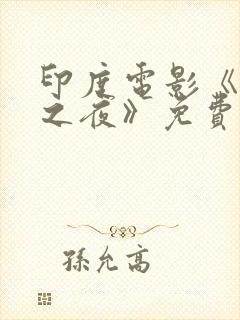 印度電影《
之夜》免費
孫允高